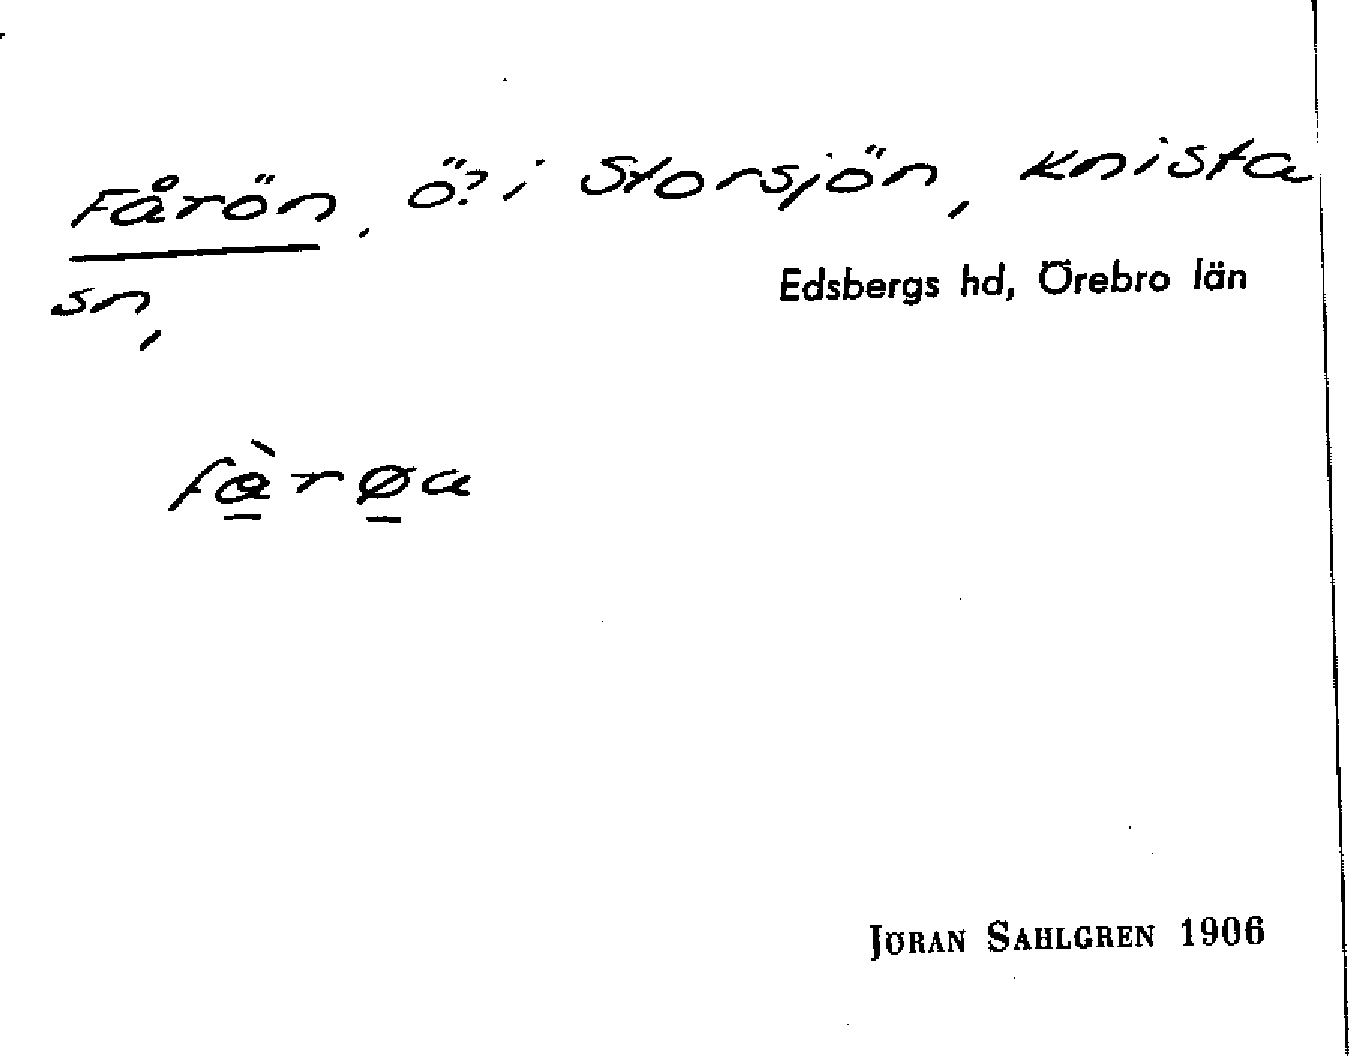 Fårön, ö? i Storsjön, Knista
Edsbergs hd, Örebro län
sn,
fàrøa
JÖRAN SAHLGREN 1906